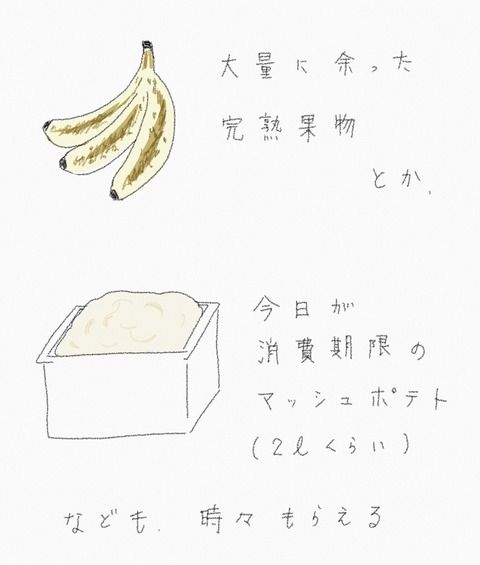 大量に余った
完熟果物
とか、
今日が
消費期限の
マッシュポテト
(2lくらい)
なども、時々もらえる